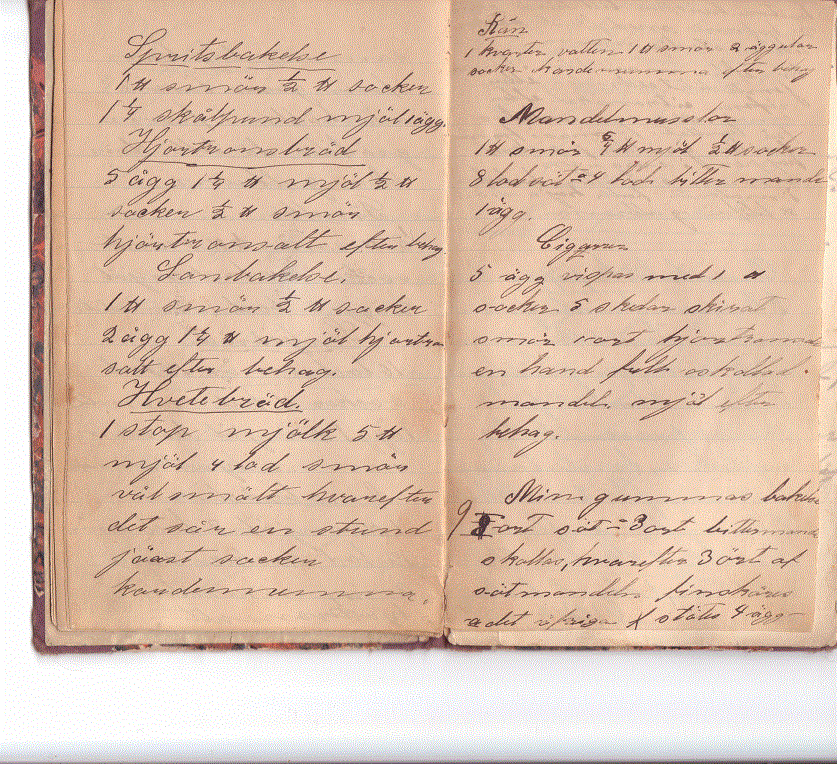 Spritsbakelse
1 ℔ smör ½ ℔ socker
1 ¼ skålpund mjöl 1 ägg.
Hjortronsbröd
5 ägg 1 ¼ ℔ mjöl ½ ℔
socker ½ ℔ smör
hjortronsalt efter behag
Sanbakelse.
1 ℔ smör ½ ℔ socker
2 ägg 1 ¼ ℔ mjöl hjortron
salt efter behag.
Hvetebröd.
1 stop mjölk 5 ℔
mjöl 4 lod smör
väl smält hvarefter
det står en stund
jäast socker
kardemumma.
Rån
1 kvarter vatten 1 ℔ smör 2 äggulor
socker kardemumma efter behag
Mandelmusslor
1 ℔ smör ℔ mjöl ½ ℔ socker
8 lod söt = 4 lod bitter mandel
1 ägg.
Ciggarrer
5 ägg vispas med 1 ℔
socker 5 skedar skirat
smör 1 ort hjortronsa
en hand full oskållad
mandel. mjöl efter
behag.
Mim gummas bakelse
9 ort söt = 3 ort bittermandel
skållas, hvarefter 3 ort af
sötmandeln finskäres
det öfriga stötes 4 ägg